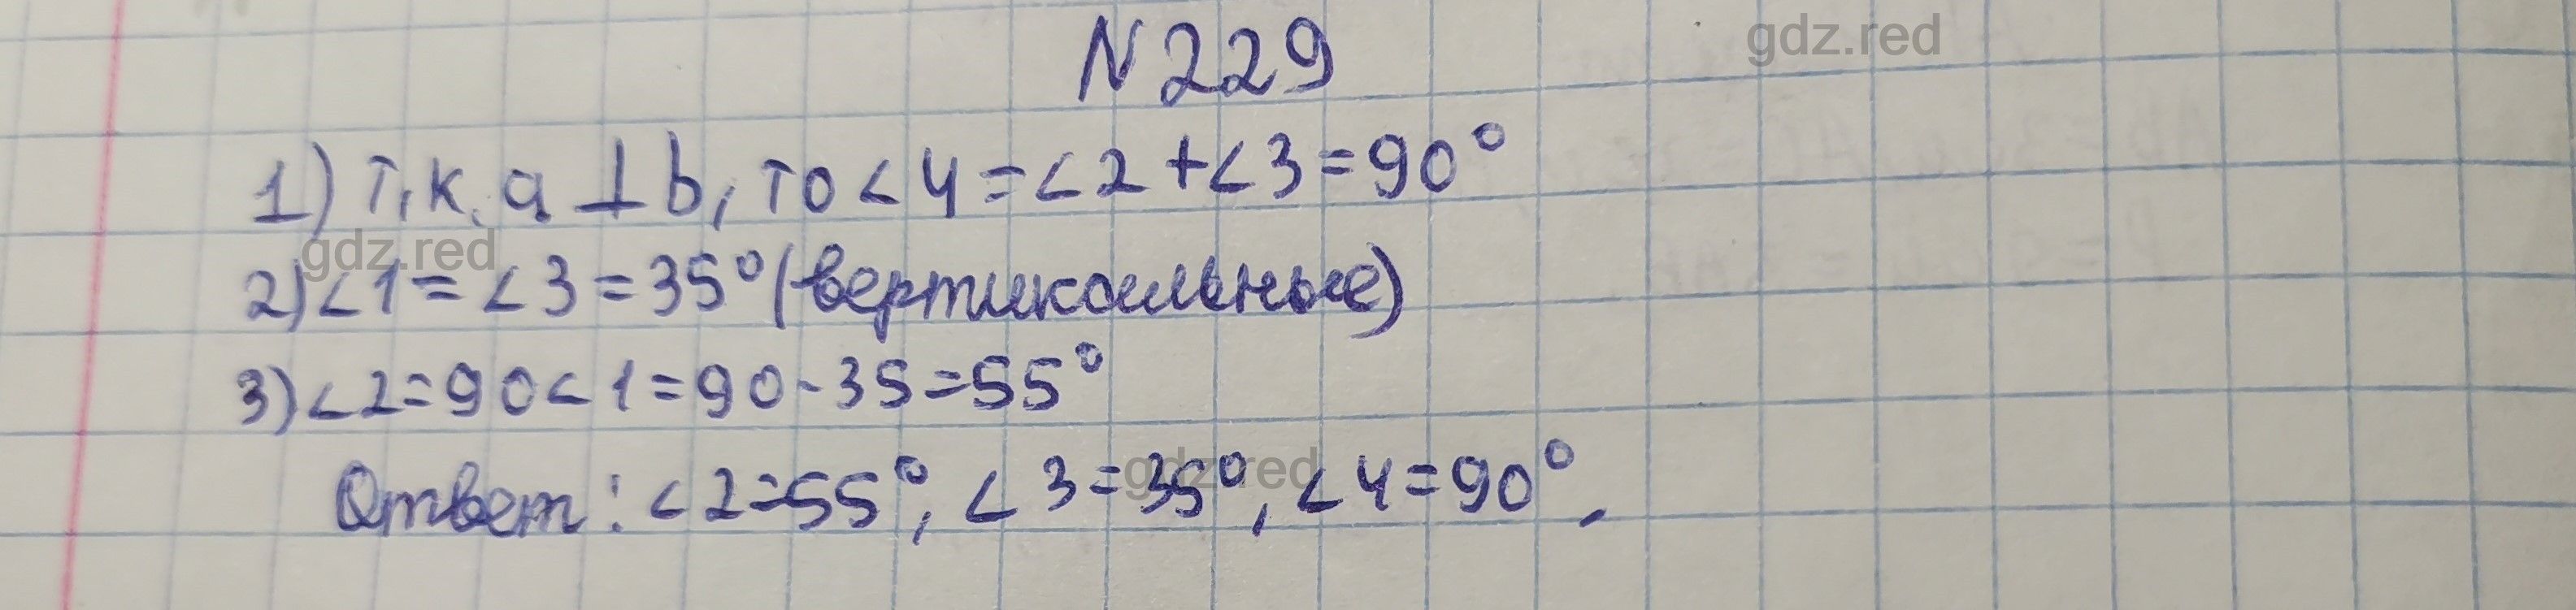 N 229
gdz.red
1) т.к. a ⊥ b, то ∠4 = ∠2 + ∠3 = 90°
gdz.red
2) ∠1 = ∠3 = 35° (вертикальные)
3) ∠2 = 90 ∠1 = 90 - 35 = 55°
gdz.red
Ответ: ∠2 = 55°, ∠3 = 35°, ∠4 = 90°.